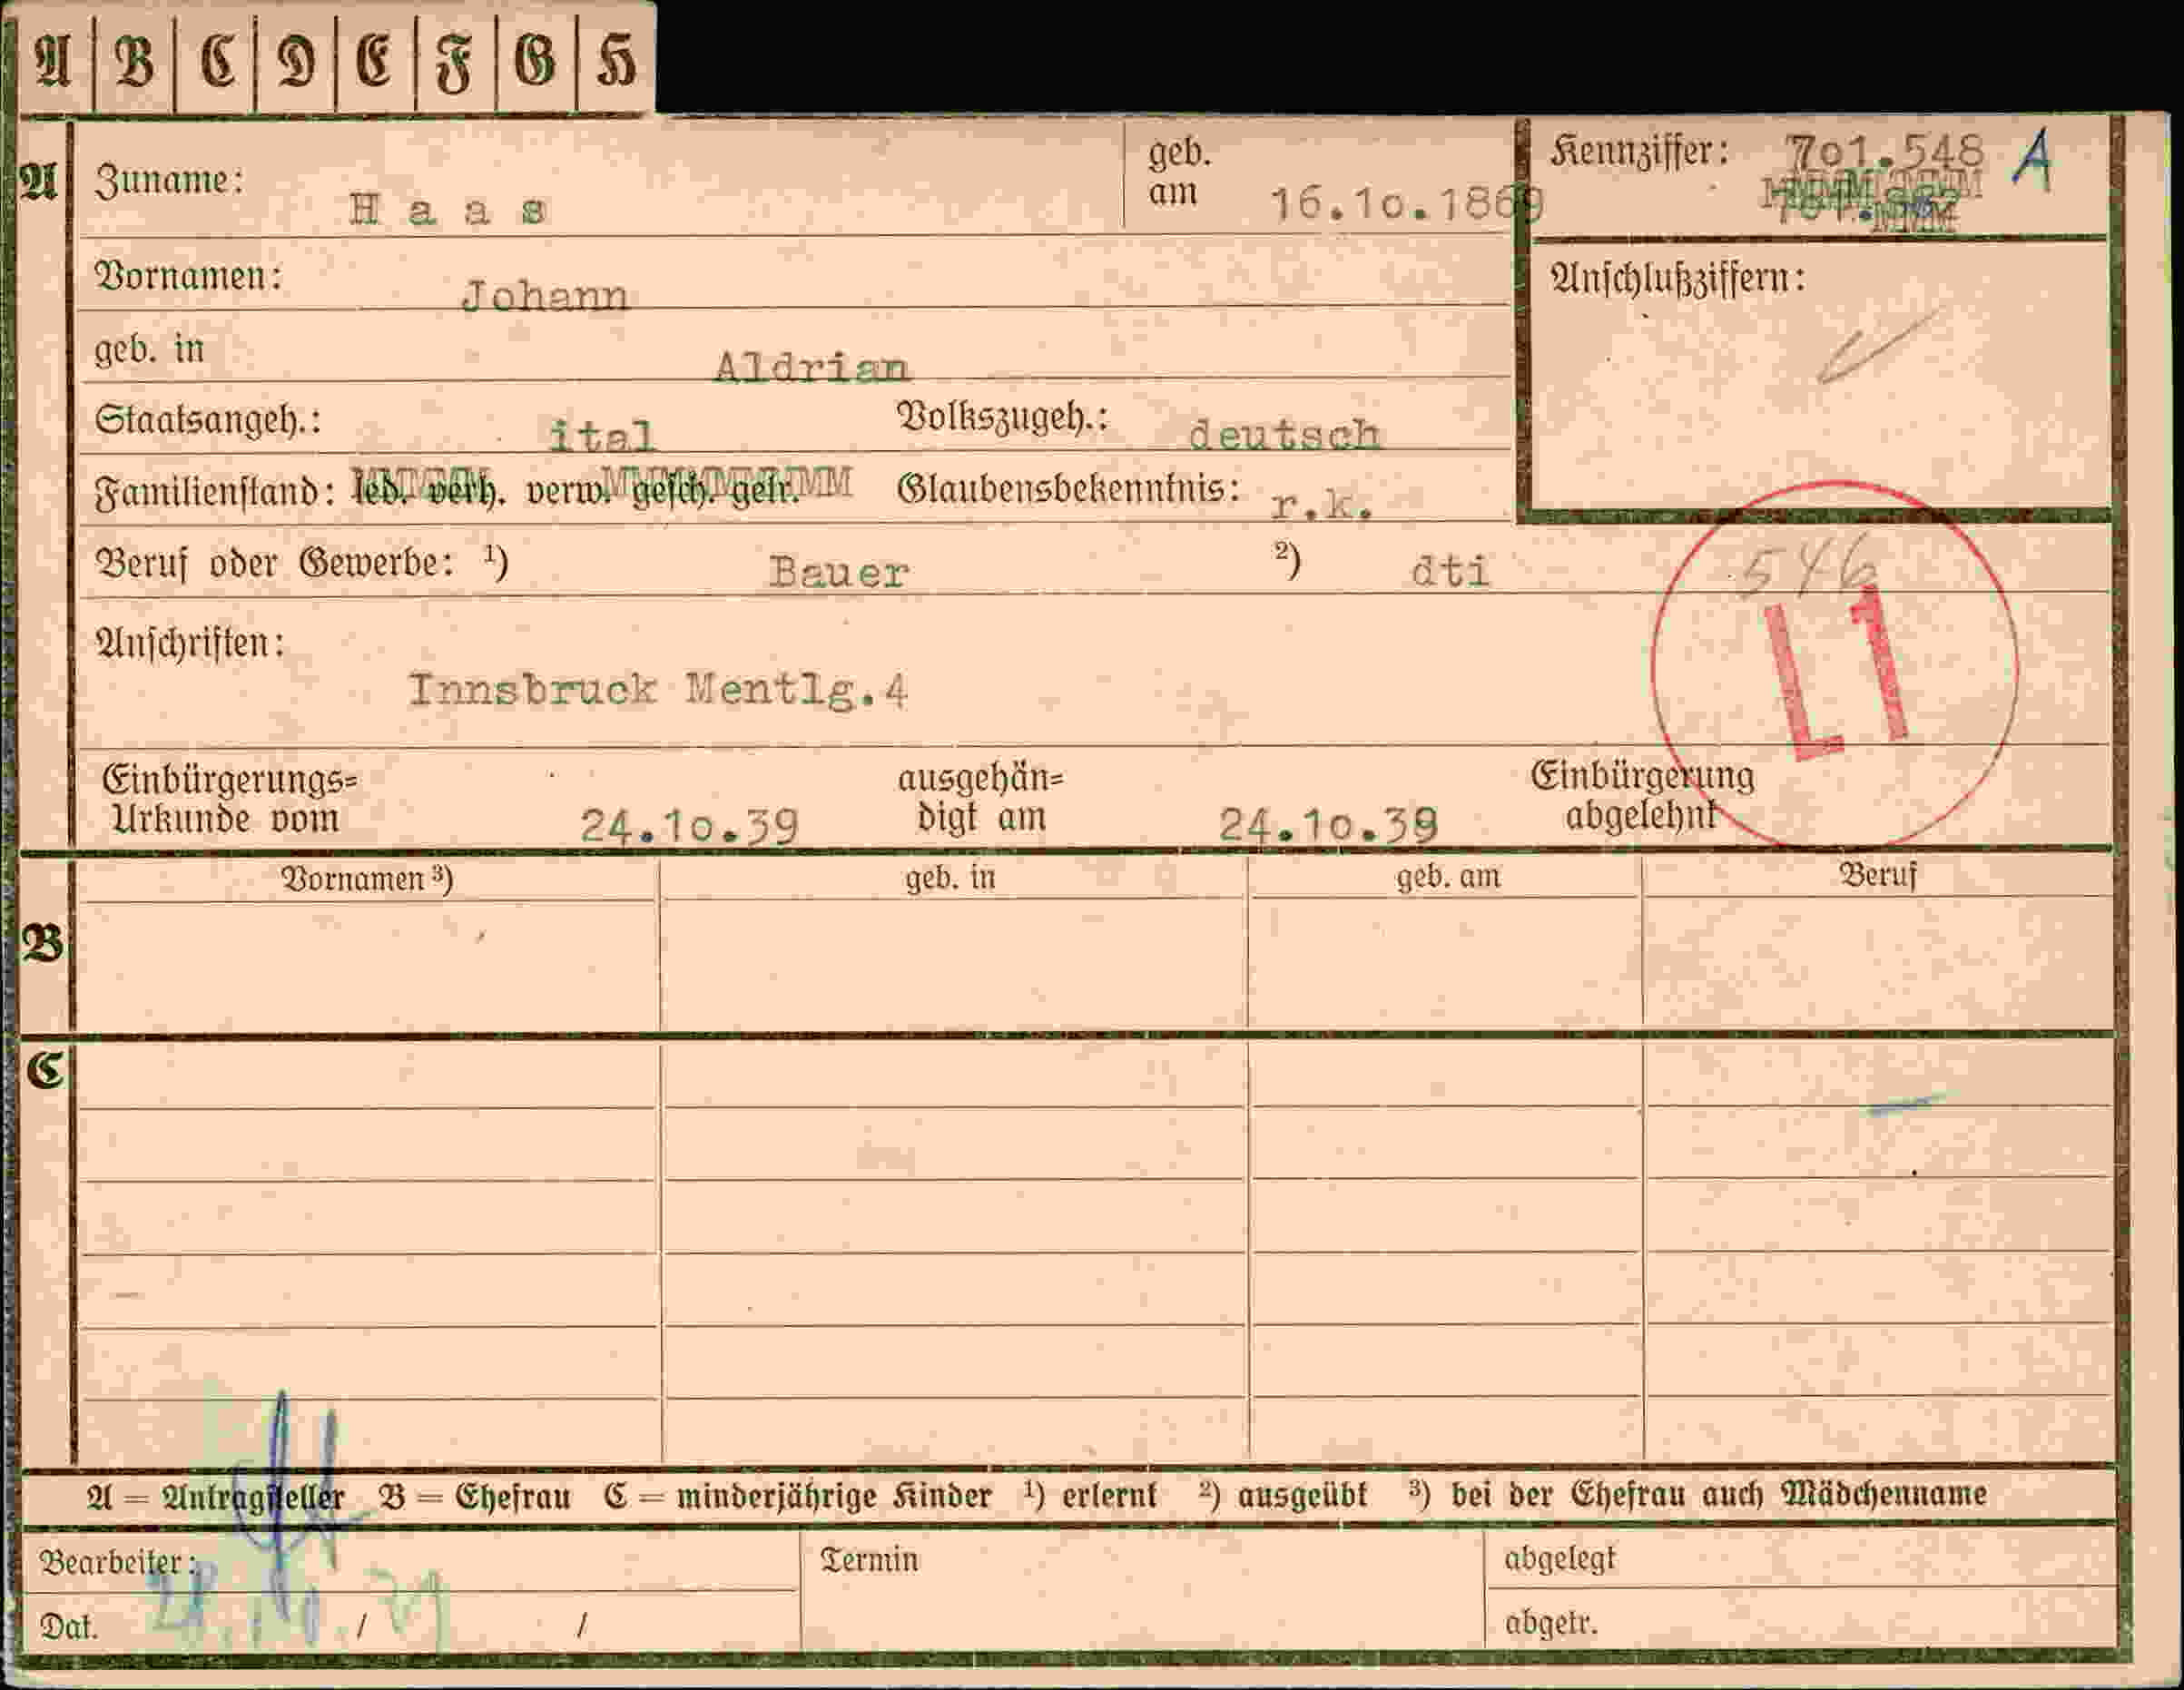 A B C D E F G H
A Zuname: Haas geb. am 16.10.1869
Kennziffer: 701.548 A
Vornamen: Johann
Anschlußziffern:
geb. in Aldrian
Staatsangeh.: ital Volkszugeh.: deutsch
Familienstand: led. verh. verw. gesch. getr. Glaubensbekenntnis: r.k.
Beruf oder Gewerbe: 1) Bauer 2) dti
546
L1
Anschriften:
Innsbruck Mentlg.4
Einbürgerungs= ausgehän= Einbürgerung
Urkunde vom 24.10.39 digt am 24.10.39 abgelehnt
Vornamen 3) geb. in geb. am Beruf
B
C
A = Antragsteller B = Ehefrau C = minderjährige Kinder 1) erlernt 2) ausgeübt 3) bei der Ehefrau auch Mädchenname
Bearbeiter: Termin abgelegt
Dat. / / abgetr.